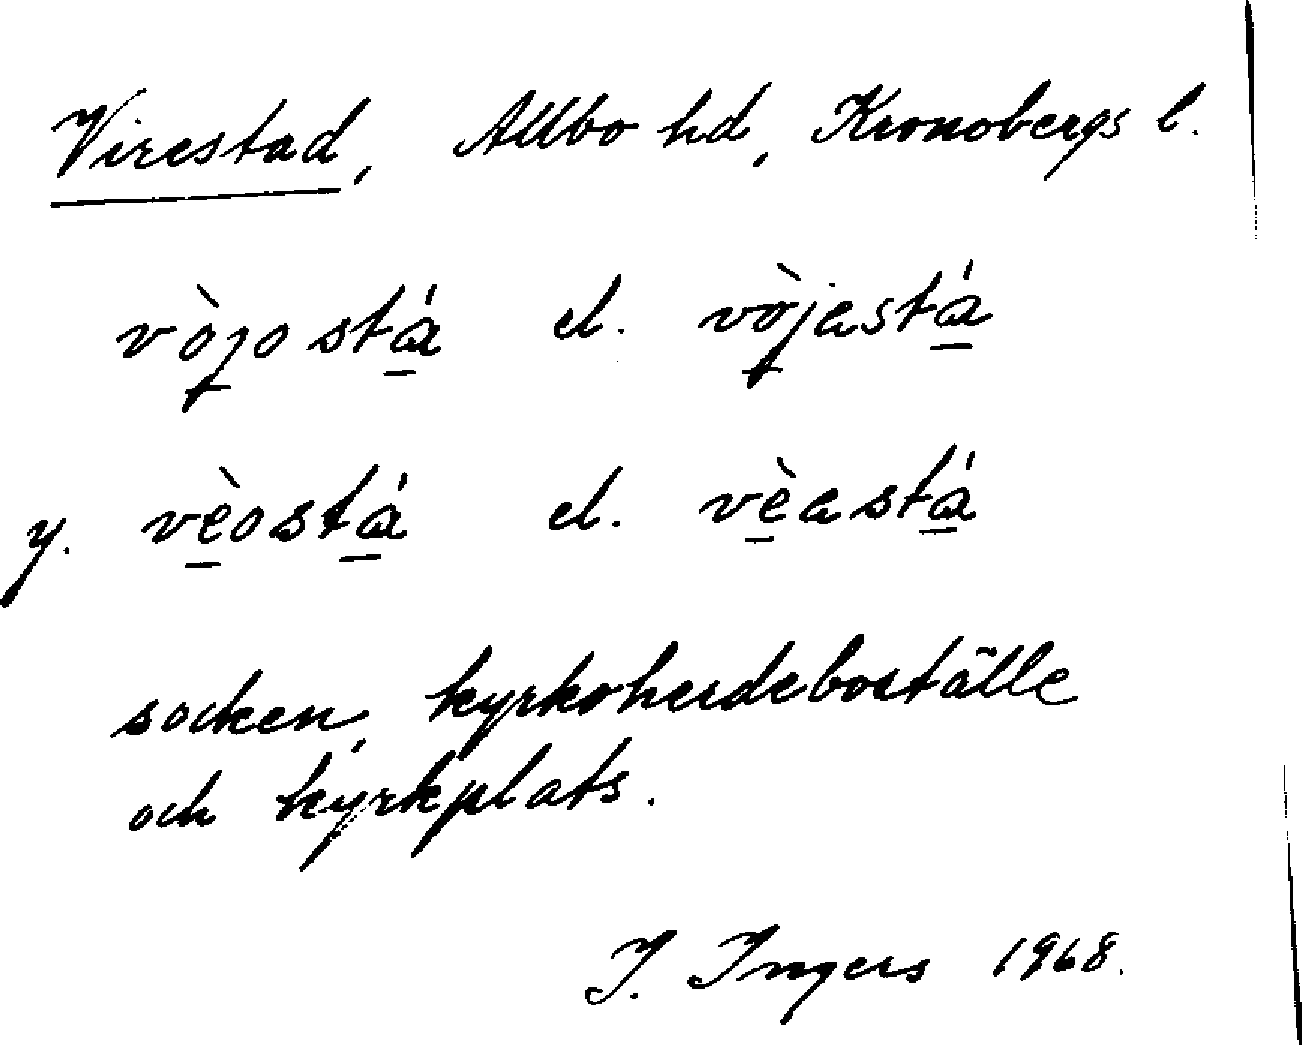 Virestad, Allbo hd, Kronobergs l.
vòjostá el. vòjastá
y. vèostá el. vèastá
socken, kyrkoherdeboställe
och kyrkplats.
I. Ingers 1968.